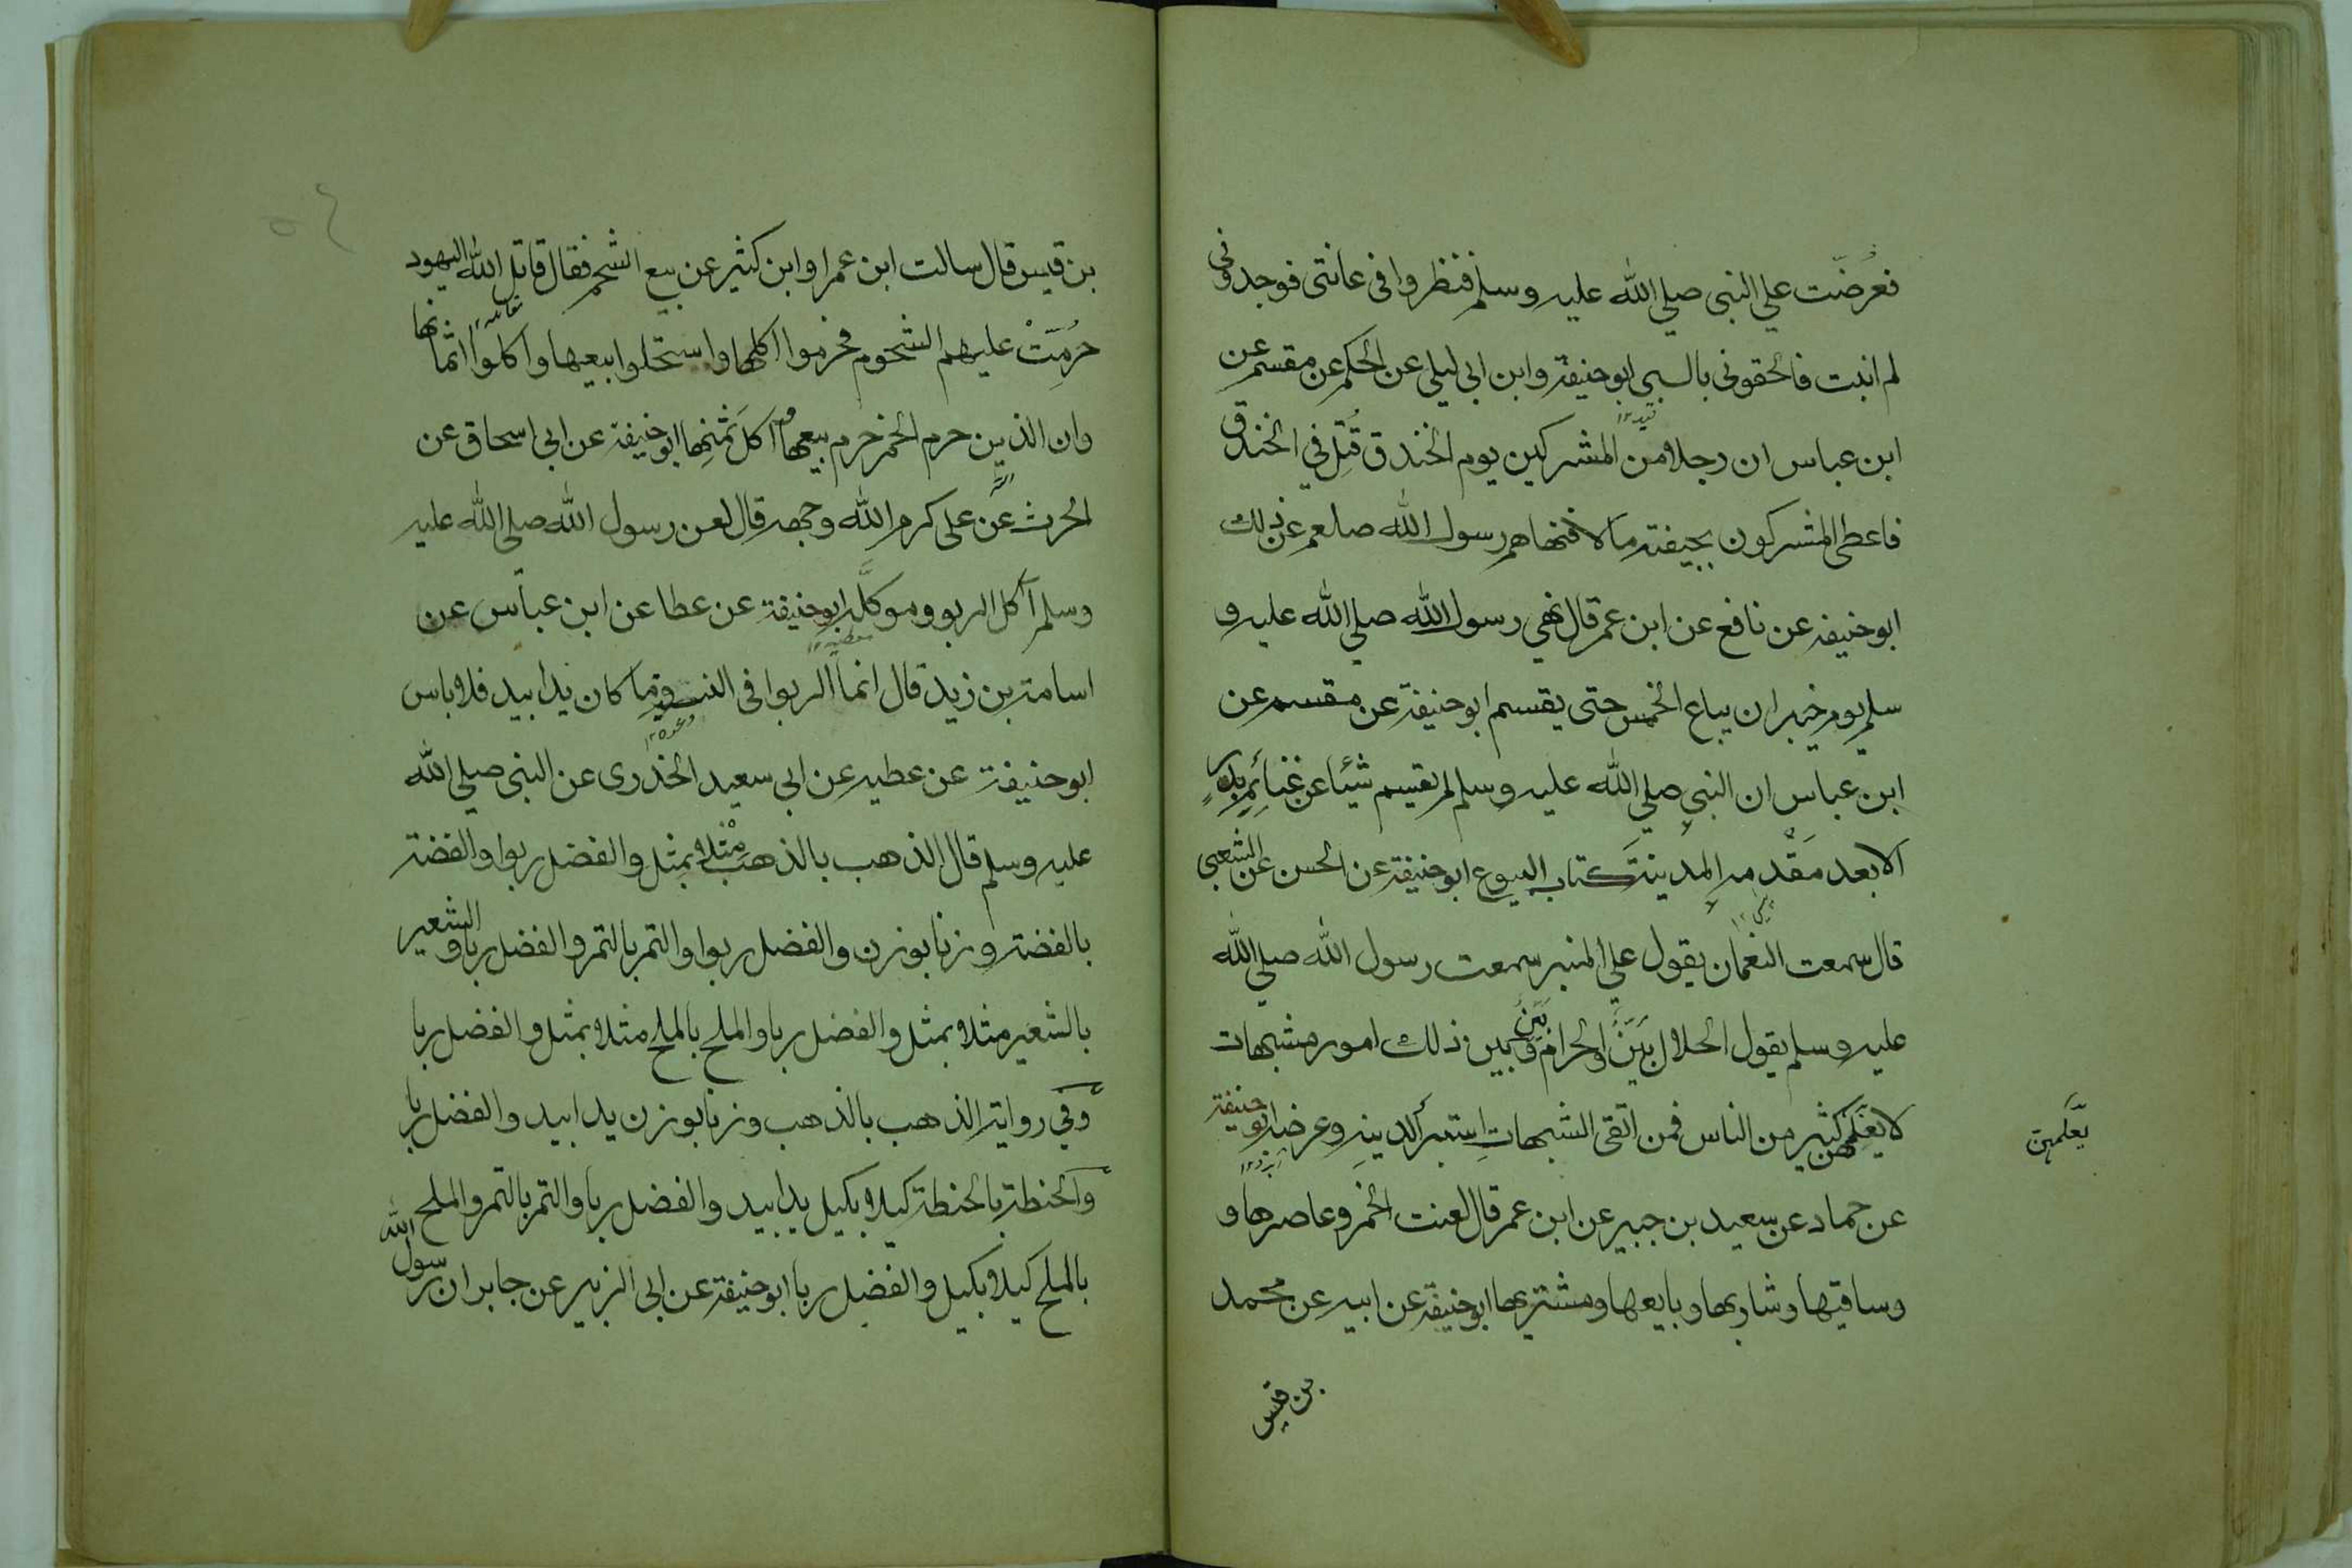 فعرضت علي النبي صلي الله عليه وسلم فنظروا في عانتي فوجدوني
لم انبت فالحقوني بالسبي ابو حنيفة وابن ابي ليلي عن الحكم عن مقسم عن
ابن عباس ان رجلا من المشركين يوم الخندق قُتِل في الخندق
فاعطي المشركون بجيفته مالا فنهاهم رسول الله صلعم عن ذلك
ابو حنيفه عن نافع عن ابن عمر قال نهي رسول الله صلي الله عليه و
سلم يوم خيبر ان يباع الخمس حتي يقسم ابو حنيفة عن مقسم عن
ابن عباس ان النبي صلي الله عليه وسلم لم يقسم شيئا عن غنائم بدر
الا بعد مَقْدمه المدينة كتاب البيوع ابو حنيفة عن الحسن عن الشعبي
قال سمعت النعمان يقول علي المنبر سمعت رسول الله صلي الله
عليه وسلم يقول الحلال بَيّنٌ والحرام بَيّنٌ وبين ذلك امور مشبهات
لا يعلمهن كثير من الناس فمن اتقي الشبهات استبرأ لدينه وعرضه ابو حنيفة
يعلمهن
عن حماد عن سعيد بن جبير عن ابن عمر قال لعنت الخمر وعاصرها و
وساقيها وشاربها وبايعها ومشتريها ابو حنيفة عن ابيه عن محمد
بن قيس
٥٤
بن قيس قال سالت ابن عمر او ابن كثير عن بيع الشحم فقال قاتل الله اليهود
حُرِمَتْ عليهم الشحوم فحرموا اكلها واستحلوا بيعها واكلوا اثمانها
وان الذين حرم الخمر حرم بيعها و اكل ثمنها ابو حنيفة عن ابي اسحاق عن
الحرث عن علي كرم الله وجهه قال لعن رسول الله صلي الله عليه
وسلم آكل الربو وموكله ابو حنيفة عن عطا عن ابن عباس عن
اسامة بن زيد قال انما الربوا في النسية وما كان يدا بيد فلا باس
ابو حنيفة عن عطيه عن ابي سعيد الخدري عن النبي صلي الله
عليه وسلم قال الذهب بالذهب مثلا بمثل والفضل ربوا والفضة
بالفضة وزنا بوزن والفضل ربوا والتمر بالتمر والفضل ربا والشعير
بالشعير مثلا بمثل والفضل ربا والملح بالملح مثلا بمثل والفضل ربا
وفي رواية الذهب بالذهب وزنا بوزن يدا بيد والفضل ربا
والحنطة بالحنطة كيلا بكيل يدا بيد والفضل ربا والتمر بالتمر والملح
بالملح كيلا بكيل والفضل ربا ابو حنيفة عن ابي الزبير عن جابر ان رسول الله